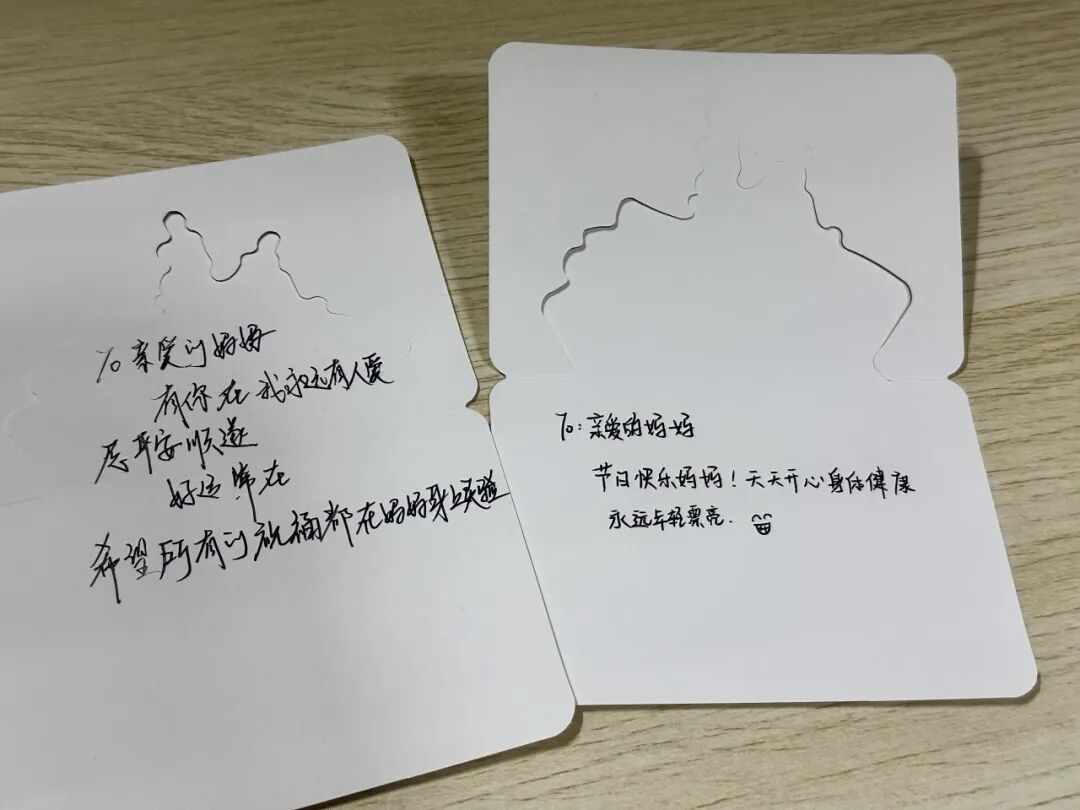 To 亲爱的妈妈
有你在我永远有人爱
愿平安顺遂
好运常在
希望所有的祝福都在妈妈身上实验
To: 亲爱的妈妈
节日快乐妈妈！天天开心身体健康
永远年轻漂亮.